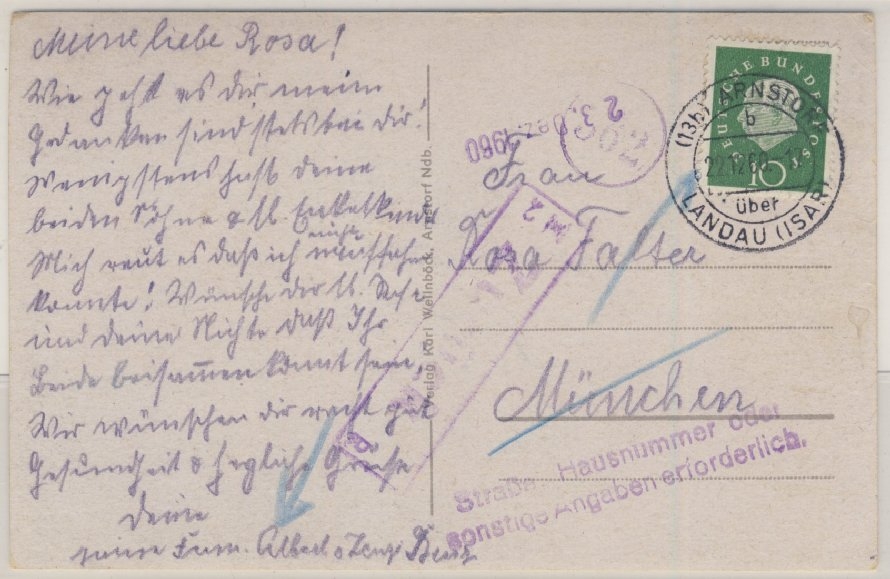 Meine liebe Rosa!
Wie geht es dir meine
Gedanken sind stets bei dir!
Wenigstens hast deine
beiden Söhne & lb. Enkelkinder
Mich reut es daß ich nicht mitfahren
konnte! Wünsche dir lb. Rosa
und deine Nichte daß Ihr
Beide beisammen könnt sein,
Wir wünschen dir recht gute
Gesundheit & herzliche Grüße
deine
Fam. Albert
Verlag Karl Wellnböck, Arnstorf Ndb.
23. Dez. 1960
DEUTSCHE BUNDESPOST
10
(13b) ARNSTORF
b
22.12.60
über
LANDAU (ISAR)
Frau
Rosa Falter
München
Straße, Hausnummer oder
sonstige Angaben erforderlich.